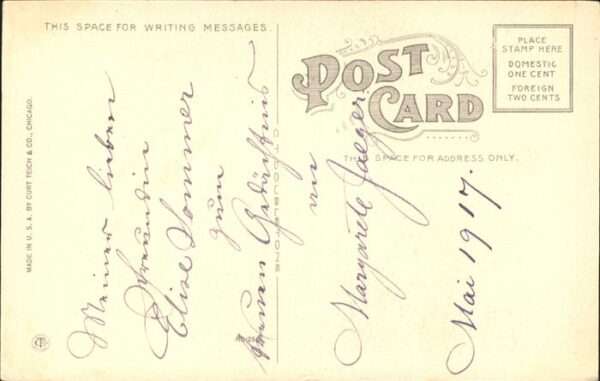 THIS SPACE FOR WRITING MESSAGES.
POST CARD
PLACE
STAMP HERE
DOMESTIC
ONE CENT
FOREIGN
TWO CENTS
THIS SPACE FOR ADDRESS ONLY.
MADE IN U.S.A. BY CURT TEICH & CO., CHICAGO.
Meiner lieben
Freundin
Elise Sommer
zum
treuen Gedächtnis
von
Margarete Jaeger.
Mai 1917.
OTOCOLUSTRONS